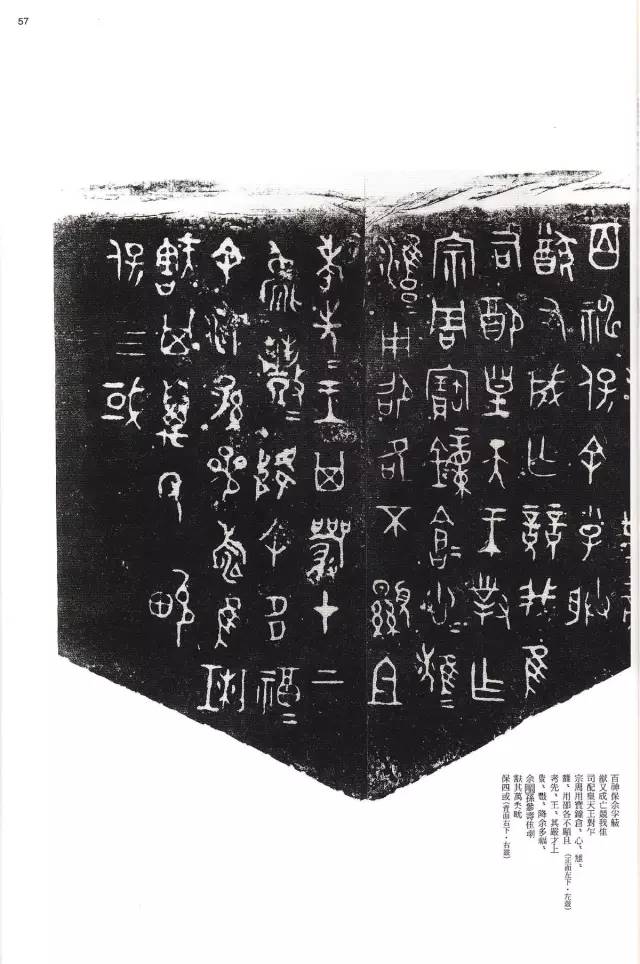 57
百神保余小子朕
猷又成亡競我隹
司配皇天王對乍
宗周寶鐘倉
用卲各不顯且
考先王其嚴才上
降余多福
余孫參壽隹琍
㝬其萬年畯
保四或
百神保余朕
猷又成亡競我隹
司配皇天王對乍
宗周用寶鐘倉、心、
雝、用卲各不顯且(正面左下・左鼓)
考先、王、其嚴才上
降余多福、
余孫參壽隹琍
㝬其萬年畯
保四或(背面右下・右鼓)